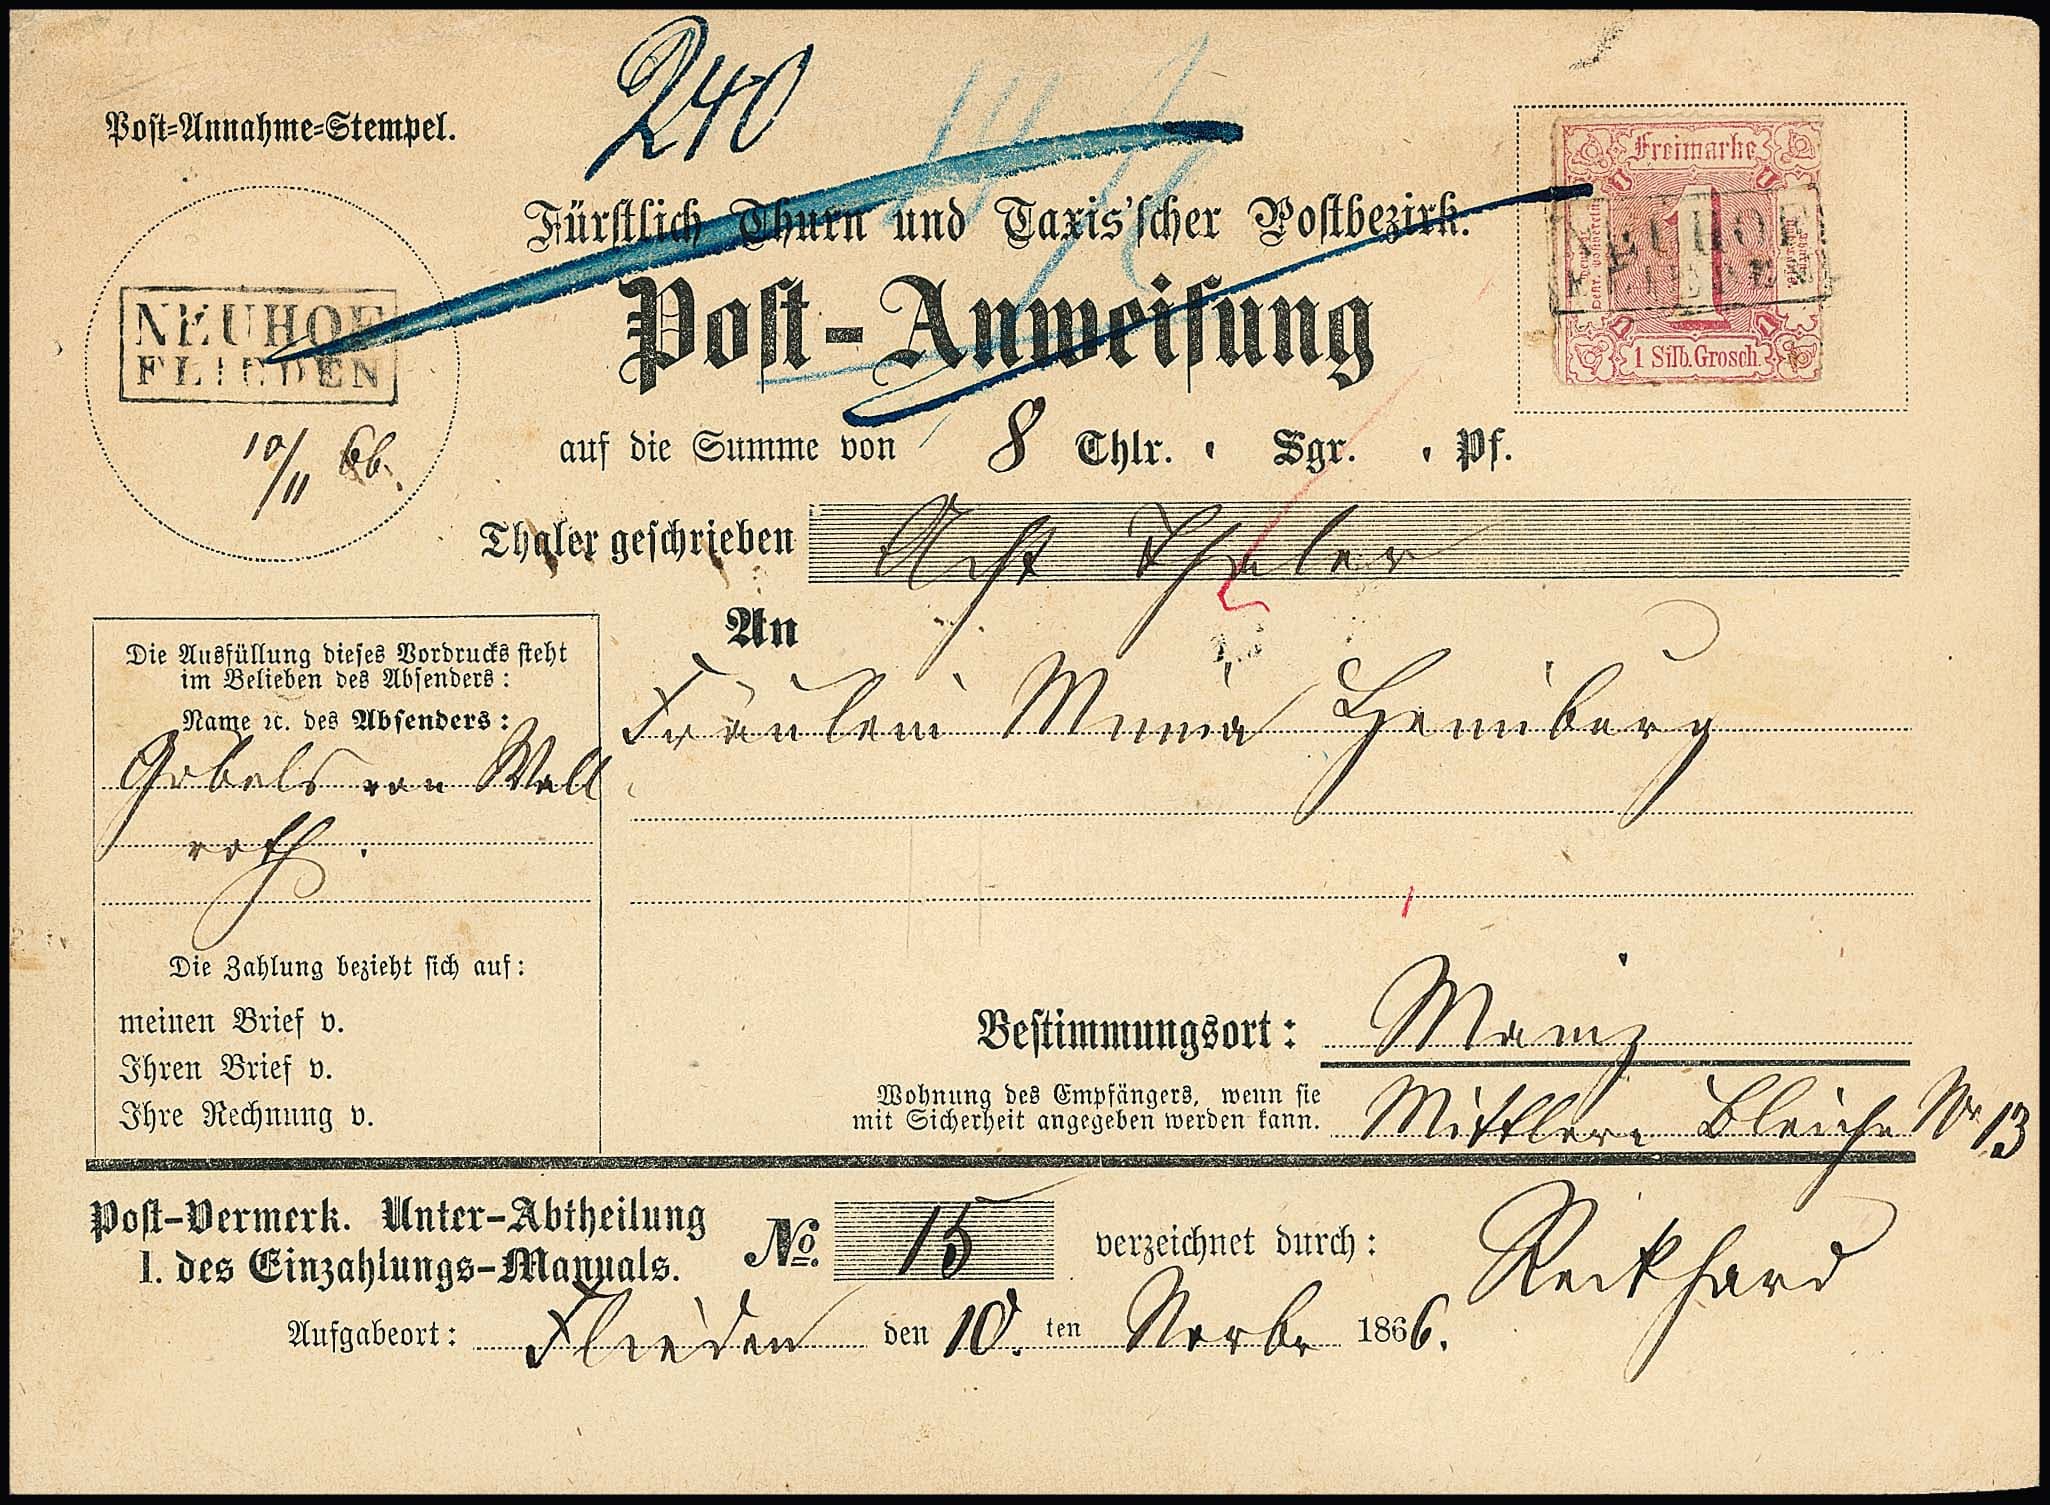 240
Post-Annahme-Stempel.
Freimarke
1
1 Silb. Grosch.
NEUHOF
FLIEDEN
Fürstlich Thurn und Taxis'scher Postbezirk.
Post-Anweisung
NEUHOF
FLIEDEN
10/11 66.
auf die Summe von 8 Thlr. Sgr. Pf.
Thaler geschrieben Acht Thaler
An
Fräulein
Die Ausfüllung dieses Vordrucks steht
im Belieben des Absenders:
Name ꝛc. des Absenders:
von Wall
roth.
Die Zahlung bezieht sich auf:
meinen Brief v.
Ihren Brief v.
Ihre Rechnung v.
Bestimmungsort: Mainz
Wohnung des Empfängers, wenn sie
mit Sicherheit angegeben werden kann.
Mittlere Bleiche Nr 13
Post-Vermerk. Unter-Abtheilung
I. des Einzahlungs-Manuals.
No. 15 verzeichnet durch:
Aufgabeort: Flieden den 10. ten Novbr 1866.